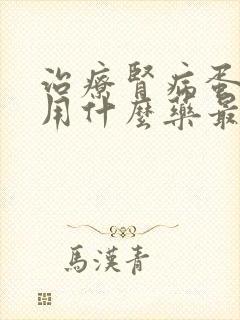 治療腎病蛋
用什麼藥最
馬漢青